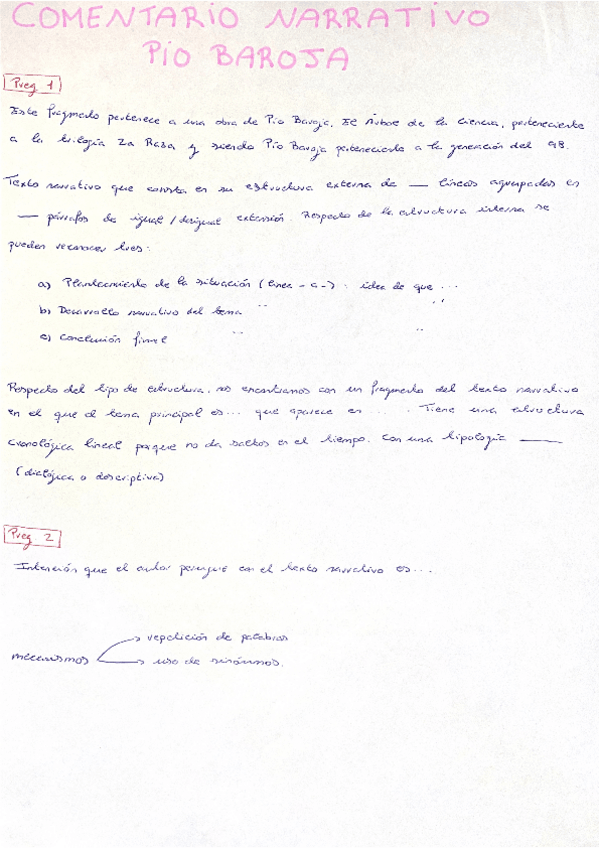 COMENTARIO NARRATIVO
PIO BAROJA
Preg 1
Este fragmento pertenece a una obra de Pio Baroja, El Árbol de la Ciencia, perteneciente
a la trilogía La Raza y siendo Pío Baroja perteneciente a la generación del 98.
Texto narrativo que consta en su estructura externa de — líneas agrupadas en
— párrafos de igual / desigual extensión. Respecto de la estructura interna se
pueden reconocer tres:
a) Planteamiento de la situación (línea - a -) : idea de que ...
b) Desarrollo narrativo del tema " "
c) Conclusión final " "
Respecto del tipo de estructura, nos encontramos con un fragmento del texto narrativo
en el que el tema principal es... que aparece en ... . Tiene una estructura
cronológica lineal porque no da saltos en el tiempo. Con una tipología —
(dialógica o descriptiva)
Preg 2
Intención que el autor persigue con el texto narrativo es...
mecanismos → repetición de palabras
→ uso de sinónimos.